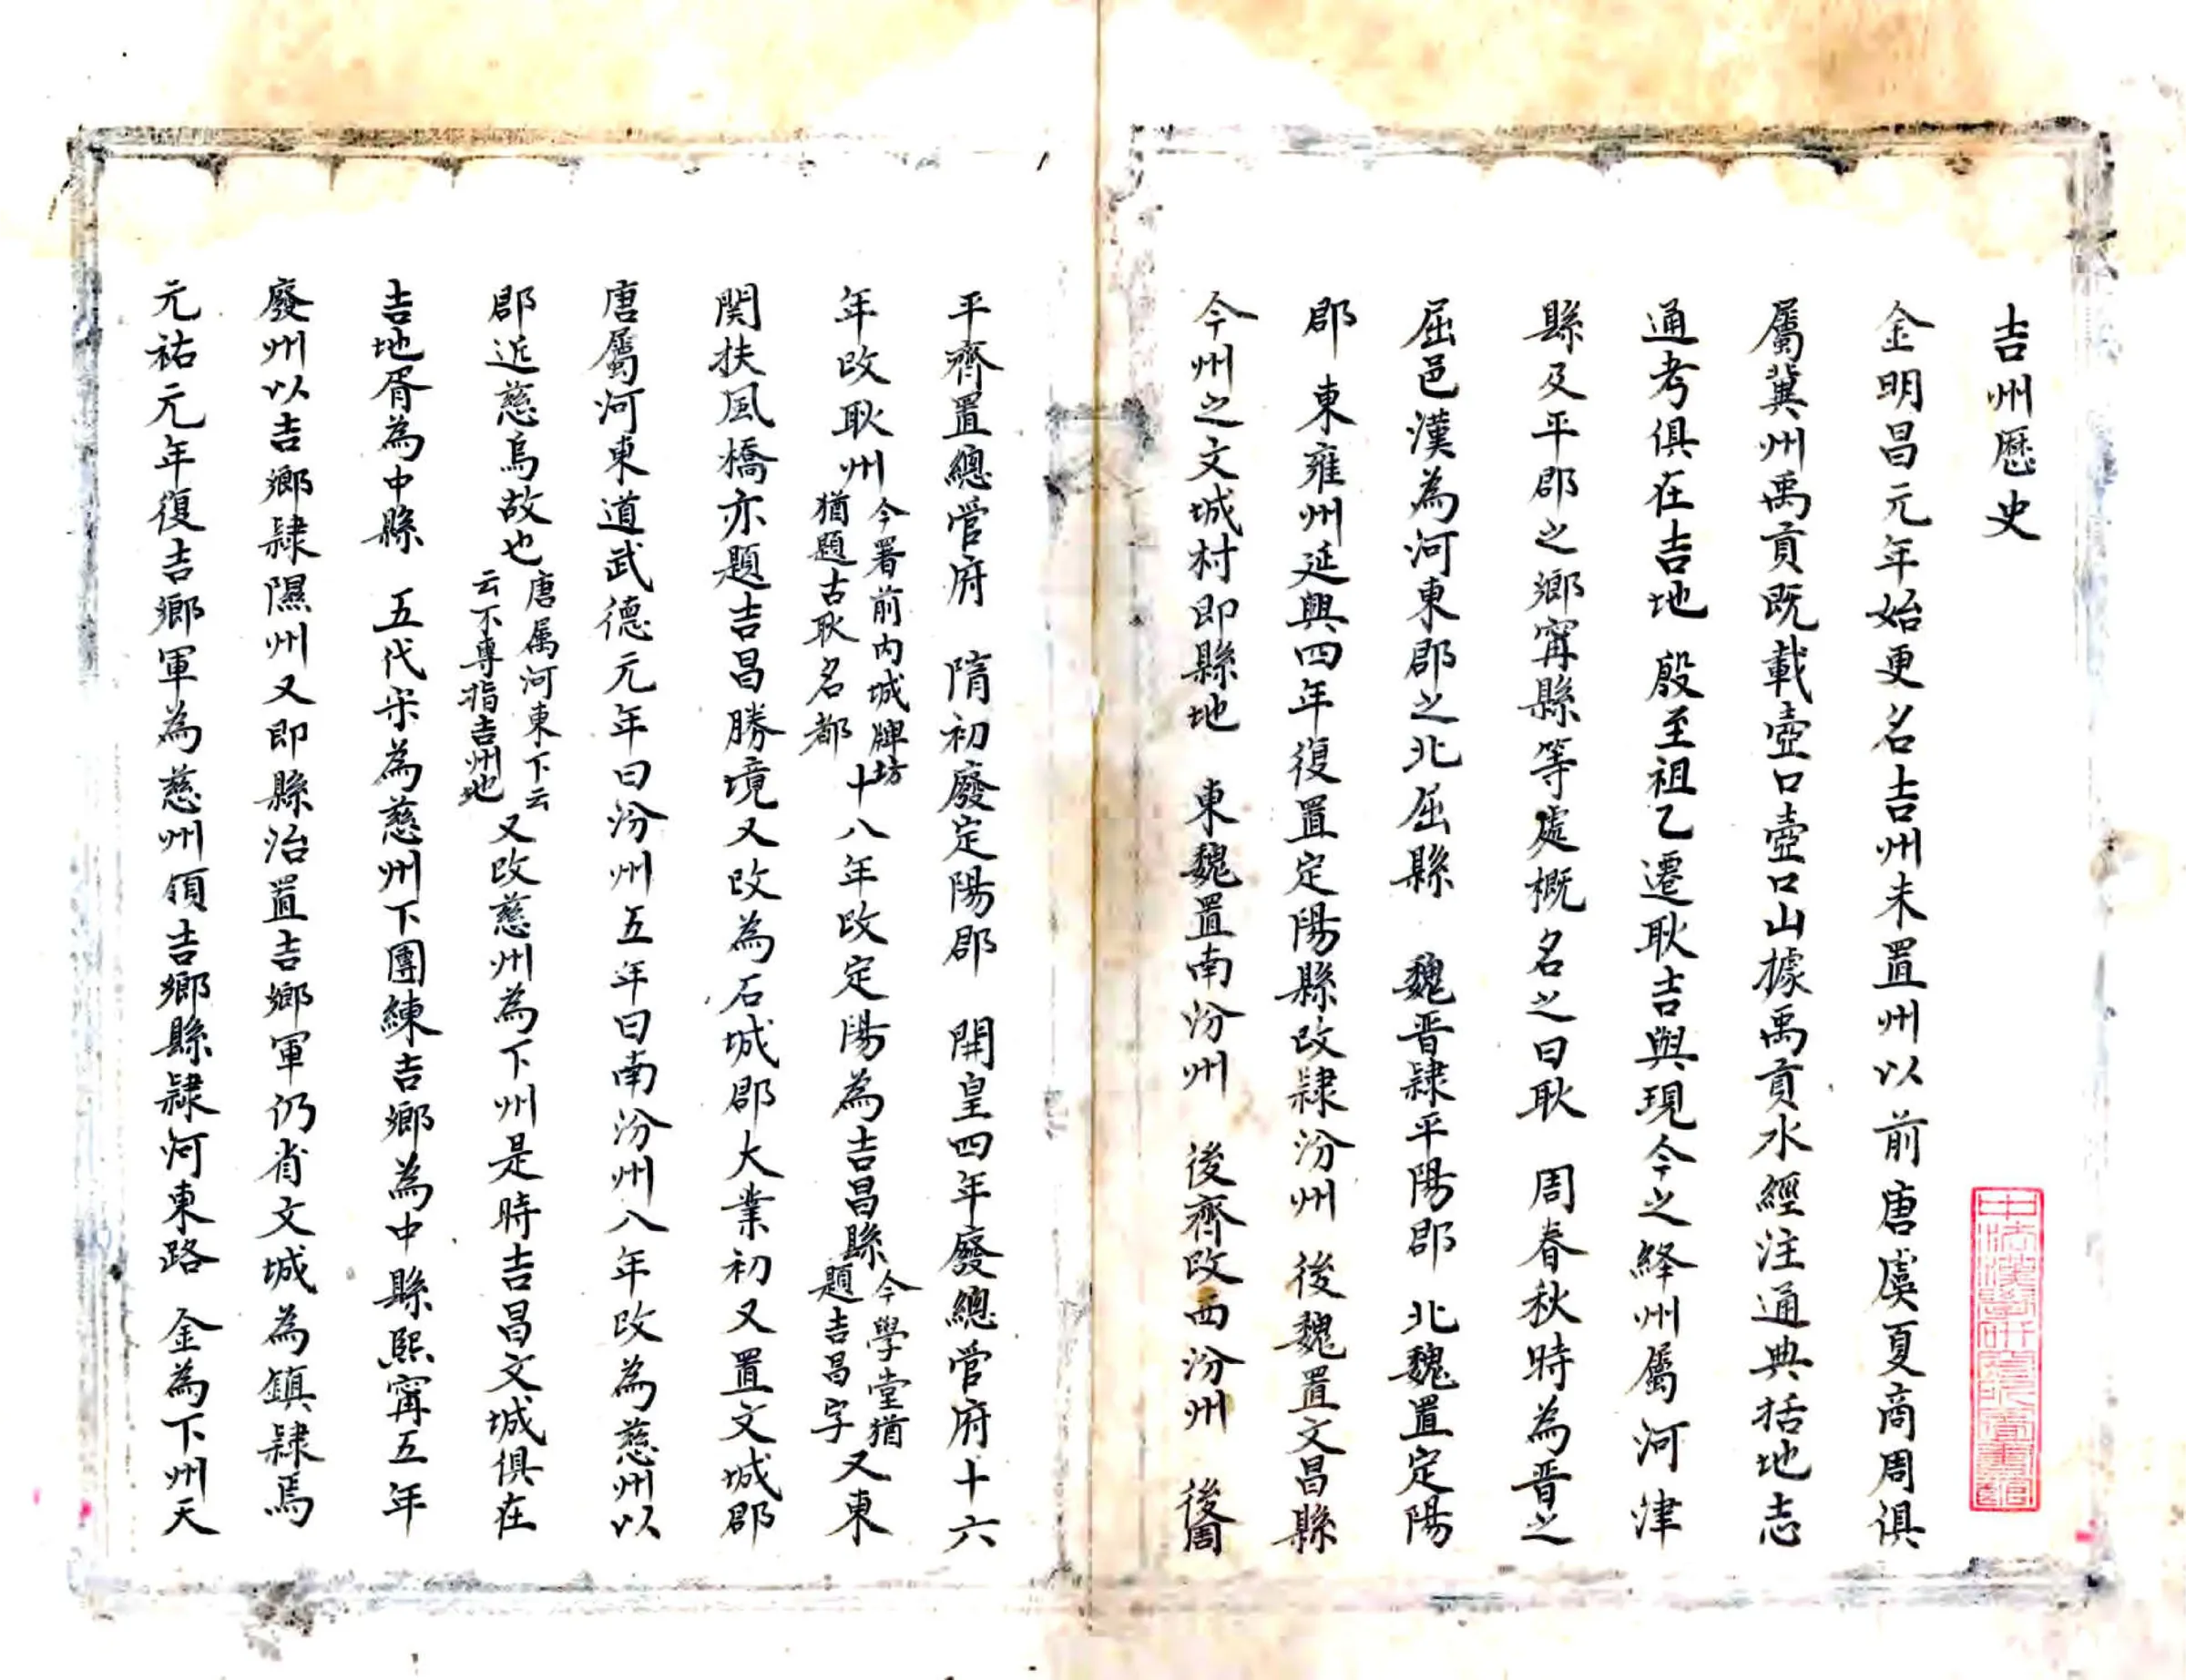 吉州歷史
金明昌元年始更名吉州未置州以前唐虞夏商周俱
屬冀州禹貢既載壺口壺口山據禹貢水經注通典括地志
通考俱在吉地 殷至祖乙遷耿吉與現今之絳州屬河津
縣及平郡之鄉寗縣等處概名之曰耿 周春秋時為晋之
屈邑漢為河東郡之北屈縣 魏晋隷平陽郡 北魏置定陽
郡 東雍州延興四年復置定陽縣改隷汾州 後魏置文昌縣
今州之文城村即縣地 東魏置南汾州 後齊改西汾州 後周
平齊置總管府 隋初廢定陽郡 開皇四年廢總管府十六
年改耿州今署前内城牌坊猶題古耿名都十八年改定陽為吉昌縣今學堂猶題吉昌字又東
関扶風橋亦題吉昌勝境又改為石城郡大業初又置文城郡
唐屬河東道武德元年曰汾州五年曰南汾州八年改為慈州以
郡近慈烏故也唐属河東下云云不專指吉州也又改慈州為下州是時吉昌文城俱在
吉地胥為中縣 五代宋為慈州下團練吉鄉為中縣熙寗五年
廢州以吉鄉隷隰州又即縣治置吉鄉軍仍省文城為鎮隷焉
元祐元年復吉鄉軍為慈州領吉鄉縣隷河東路 金為下州天
中法漢學研究所圖書館